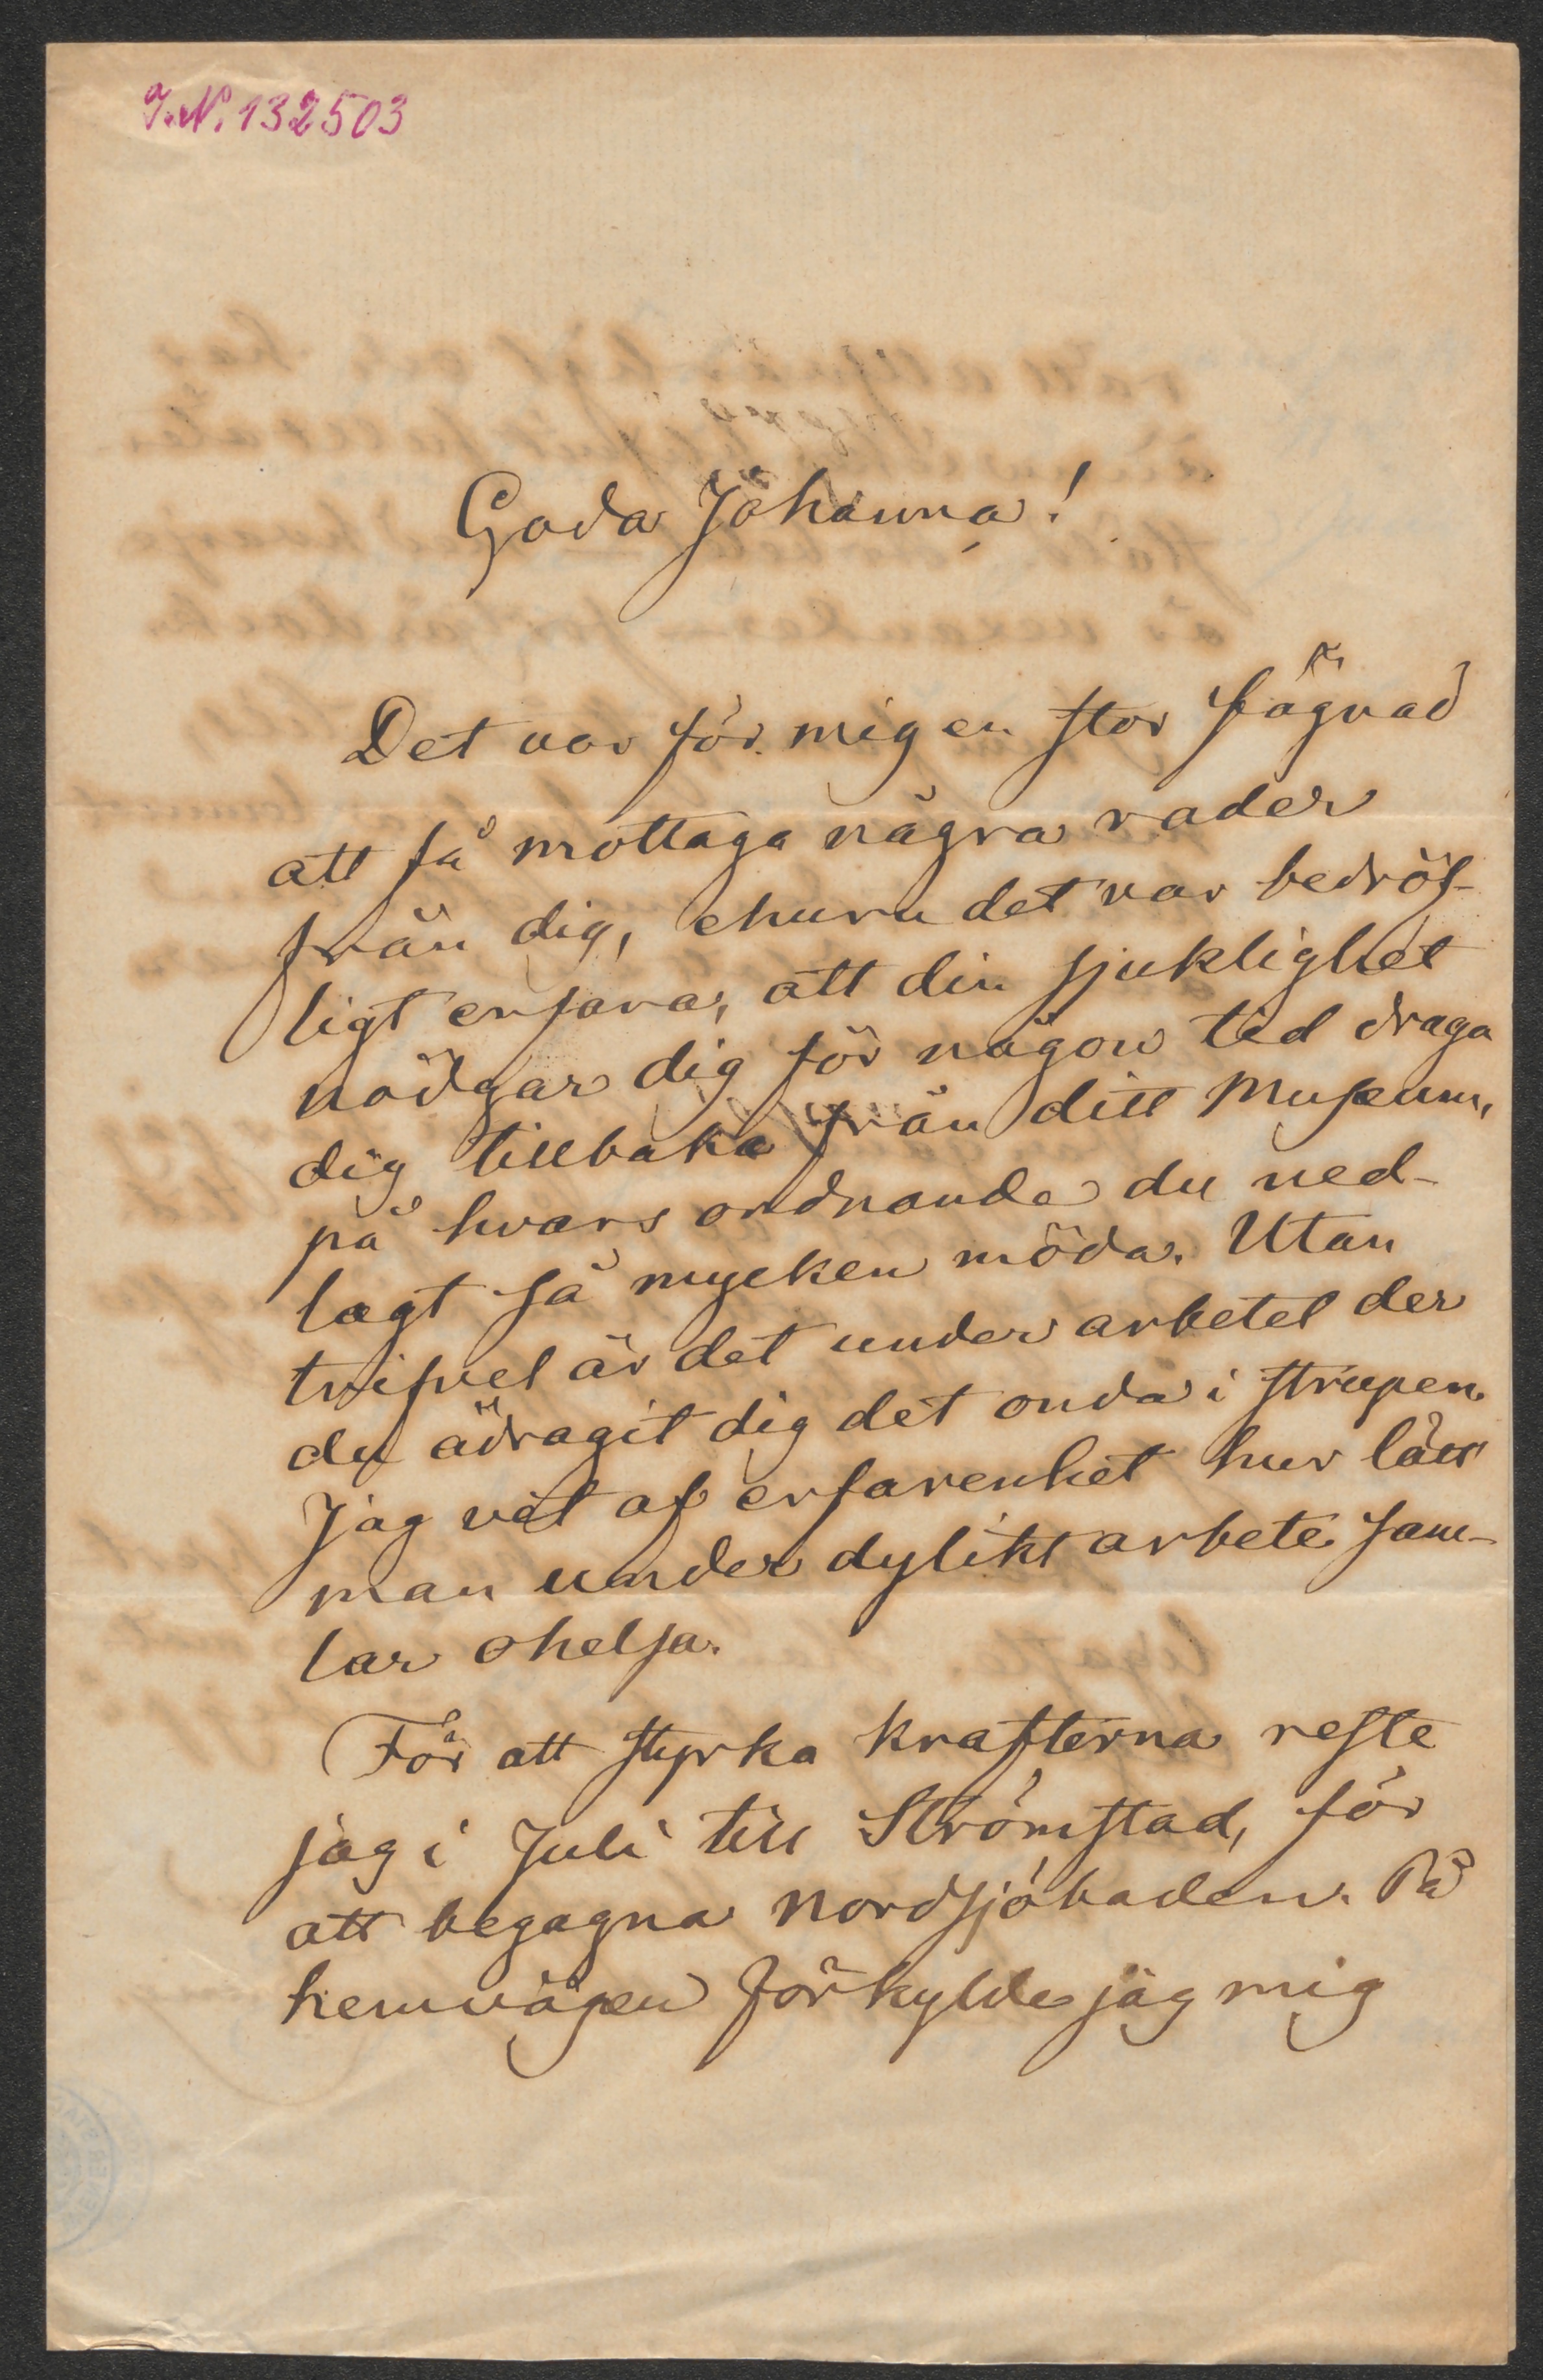 I.N. 132503
Goda Johanna!
Det var för mig en stor fägnad
att få mottaga några rader
från dig, ehuru det var bedröf-
ligt erfara, att din sjuklighet
nödgar dig för någon tid draga
dig tillbaka från ditt Museum,
på hvars ordnande du ned-
lagt så mycken möda. Utan
tvifvel är det under arbetet der
du ådragit dig det onda i strupen.
Jag vet af erfarenhet hur lätt
man under dylikt arbete sam-
lar ohelsa.
För att styrka krafterna reste
jag i Juli till Strömstad, för
att begagna Nordsjöbaden. På
hemvägen förkylde jag mig